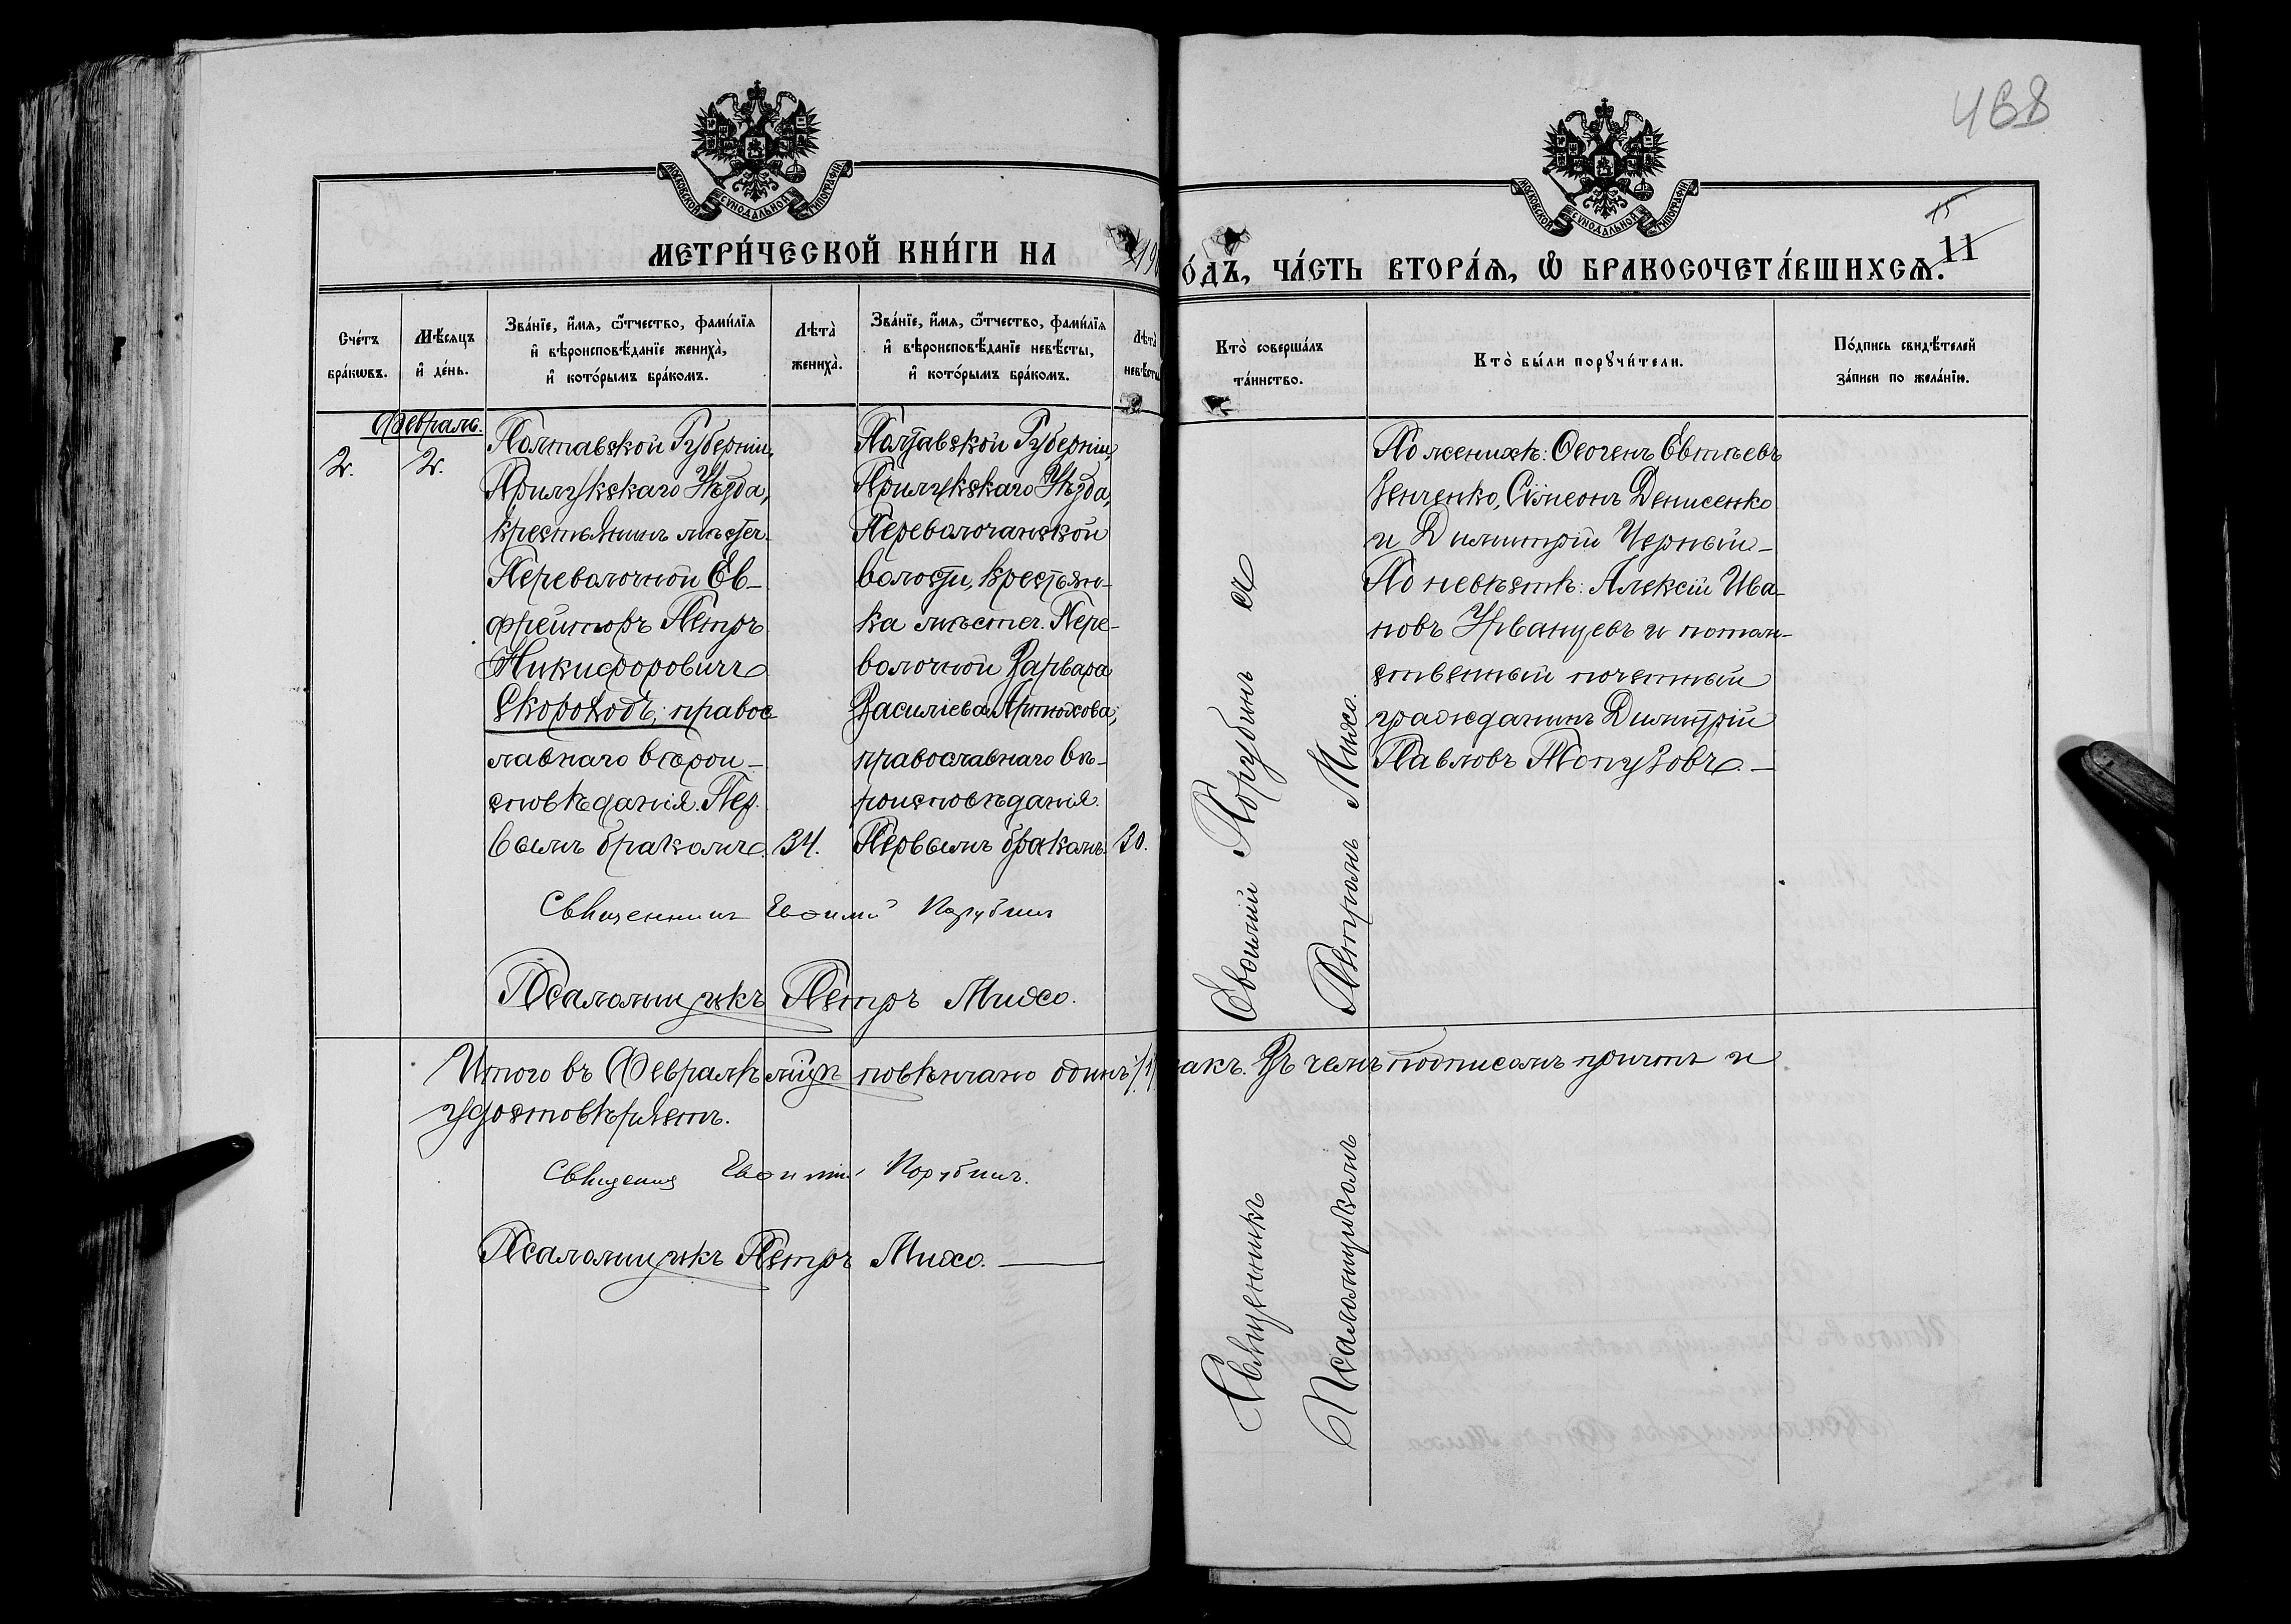 468
МОСКОВСКОЙ СѴНОДАЛЬНОЙ ТИПОГРАФІИ
МОСКОВСКОЙ СѴНОДАЛЬНОЙ ТИПОГРАФІИ
15
11
МЕТРИ́ЧЕСКОЙ КНИ́ГИ НА 19
О́ДЪ, ЧА́СТЬ ВТОРА́Ѧ, Ѽ БРАКОСОЧЕТА́ВШИХСѦ.
Сче́тъ
бра́кѡвъ.
Мѣ́сяцъ
и҆ де́нь.
Зва́нїе, и҆́мѧ, ѻ҆́тчество, фами́лїѧ
и҆ вѣроисповѣ́данїе жениха̀,
и҆ кото́рымъ бра́комъ.
Лѣта̀
жениха̀.
Зва́нїе, и҆́мѧ, ѻ҆́тчество, фами́лїѧ
и҆ вѣроисповѣ́данїе невѣ́сты,
и҆ кото́рымъ бра́комъ.
Лѣта̀
невѣ́сты
Кто̀ соверша́лъ
та́инство.
Кто̀ бы́ли порꙋчи́тели.
По́дпись свидѣ́телей
за́писи по жела́нїю.
Февраль.
2.
2.
Полтавской Губерніи,
Прилукскаго Уѣзда,
крестьянинъ мѣстеч.
Переволочной Еф-
фрейторъ Петръ
Никифоровичъ
Скороходъ, правос
лавнаго вѣрои-
сповѣданія. Пер.
вымъ бракомъ.
34.
Полтавской Губерніи,
Прилукскаго Уѣзда,
Переволочанской
волости, крестьян-
ка мѣстеч. Пере-
волочной Варвара
Василіева Артюхова,
православнаго вѣ-
роисповѣданія.
Первымъ бракомъ.
20.
Священникъ Евѳимій Порубинъ съ
Псаломщикомъ Петромъ Михо.
По женихѣ: Ѳеогенъ Евтѣевъ
Зенченко, Сімеонъ Денисенко
и Димитрій Черный-
По невѣстѣ: Алексій Ива-
новъ Урванцевъ и потом-
ственный почетный
гражданинъ Димитрій
Павловъ Попузовъ. -
Священникъ Евѳимій Порубинъ
Псаломщикъ Петръ Михо.
Итого въ Февралѣ м-цѣ повѣнчано одинъ /1/ акъ. Въ чемъ подписомъ причтъ и
удостовѣряетъ.
Священник Евѳимій Порубинъ.
Псаломщикъ Петръ Михо. —